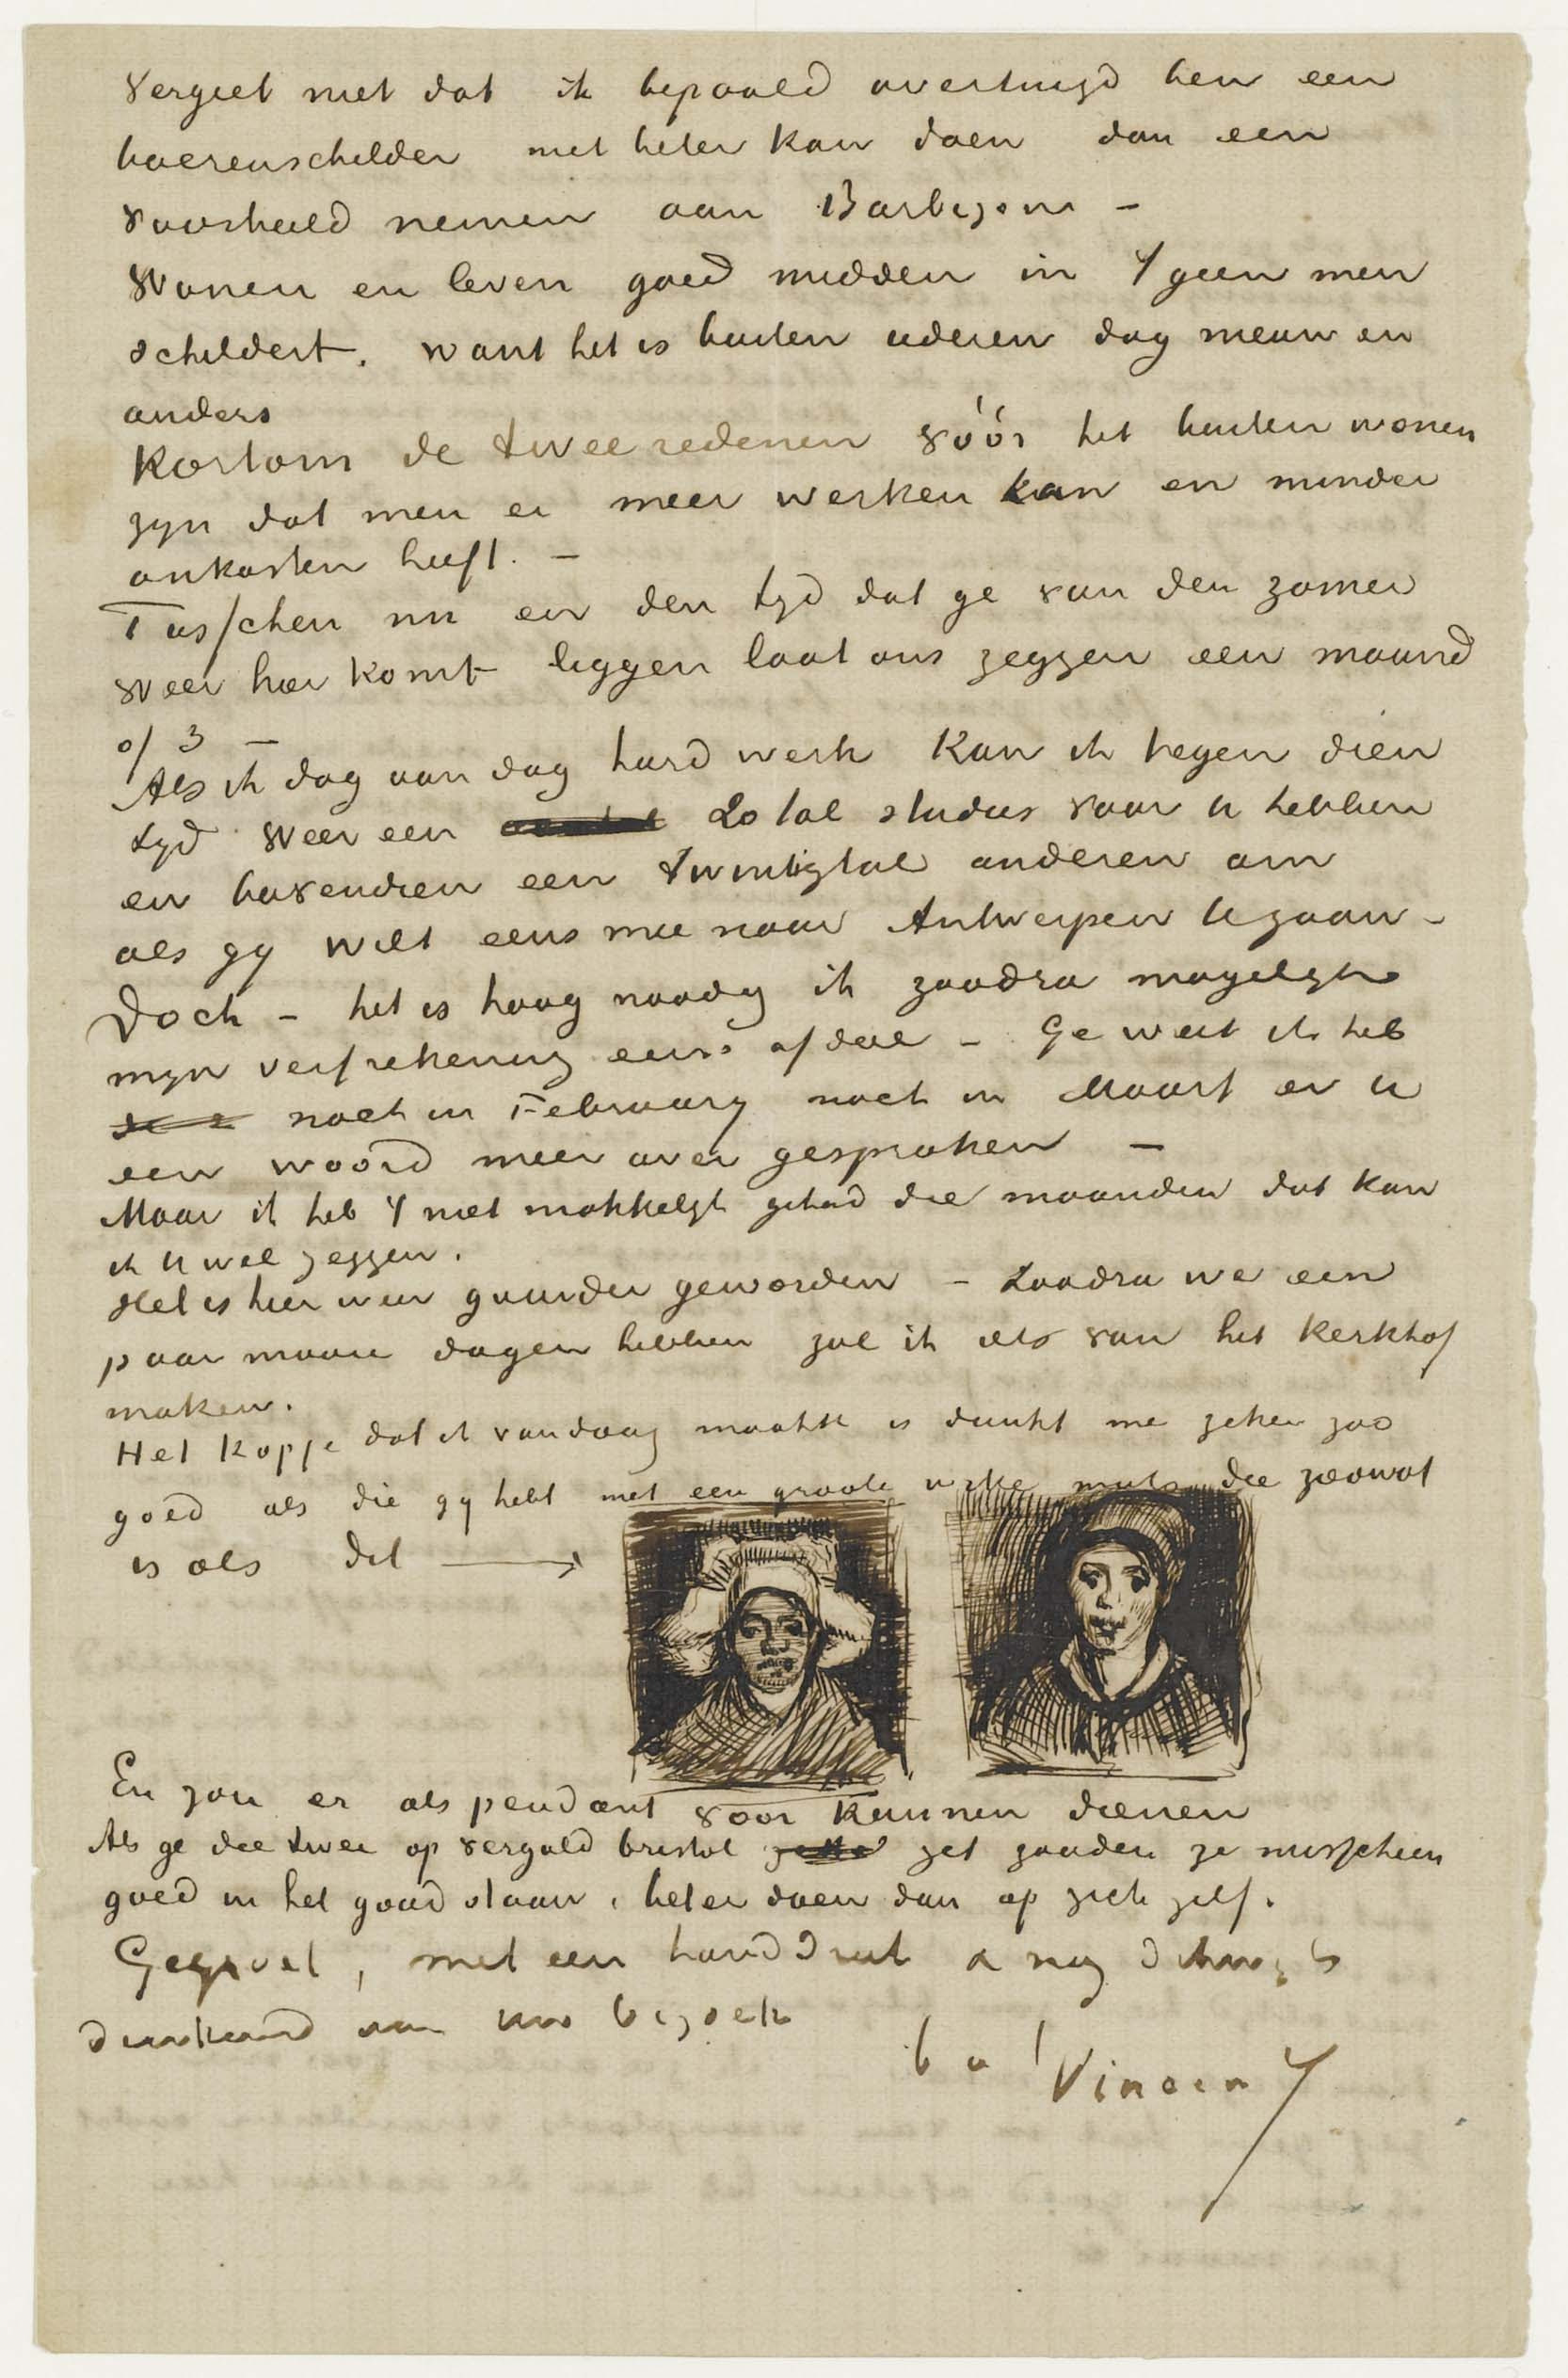 vergeet niet dat ik bepaald overtuigd ben een
boerenschilder niet beter kan doen dan een
voorbeeld nemen aan Barbizon –
Wonen en leven goed midden in 't geen men
schildert. want het is buiten iederen dag nieuw en
anders
Kortom de twee redenen vóór het buiten wonen
zyn dat men er meer werken kan en minder
onkosten heeft. –
Tusschen nu en den tyd dat ge van den zomer
weer hier komt liggen laat ons zeggen een maand
of 3 –
Als ik dag aan dag hard werk kan ik tegen dien
tyd weer een 20 tal studies voor U hebben
en bovendien een twintigtal anderen om
als gy wilt eens mee naar Antwerpen te gaan –
Doch – het is hoog noodig ik zoodra mogelyk
myn verfrekening eens afdoe – Ge weet ik heb
noch in February noch in Maart er U
een woord meer over gesproken –
Maar ik heb 't niet makkelyk gehad die maanden dat kan
ik U wel zeggen.
Het is hier weer guurder geworden – Zoodra we een
paar mooie dagen hebben zal ik iets van het kerkhof
maken.
Het kopje dat ik vandaag maakte is dunkt me zeker zoo
goed als die gy hebt met een groote witte muts die zoowat
is als dit →
En zou er als pendant voor kunnen dienen
Als ge die twee op verguld bristol zet zouden ze misschien
goed in het goud staan, beter doen dan op zich zelf.
Gegroet, met een handdruk & nog
dankend voor Uw bezoek
b à t Vincent